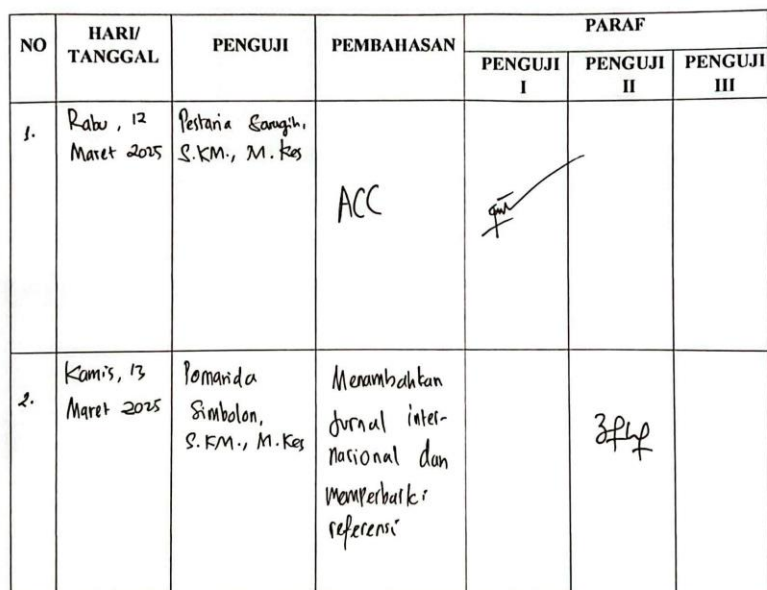 NO
HARI/
TANGGAL
PENGUJI
PEMBAHASAN
PARAF
PENGUJI
I
PENGUJI
II
PENGUJI
III
1.
Rabu, 12
Maret 2025
Pestaria Saragih,
S.KM., M.Kes
ACC
2.
Kamis, 13
Maret 2025
Pomarida
Simbolon,
S.KM., M.Kes
Menambahkan
Jurnal inter-
nasional dan
memperbaiki
referensi